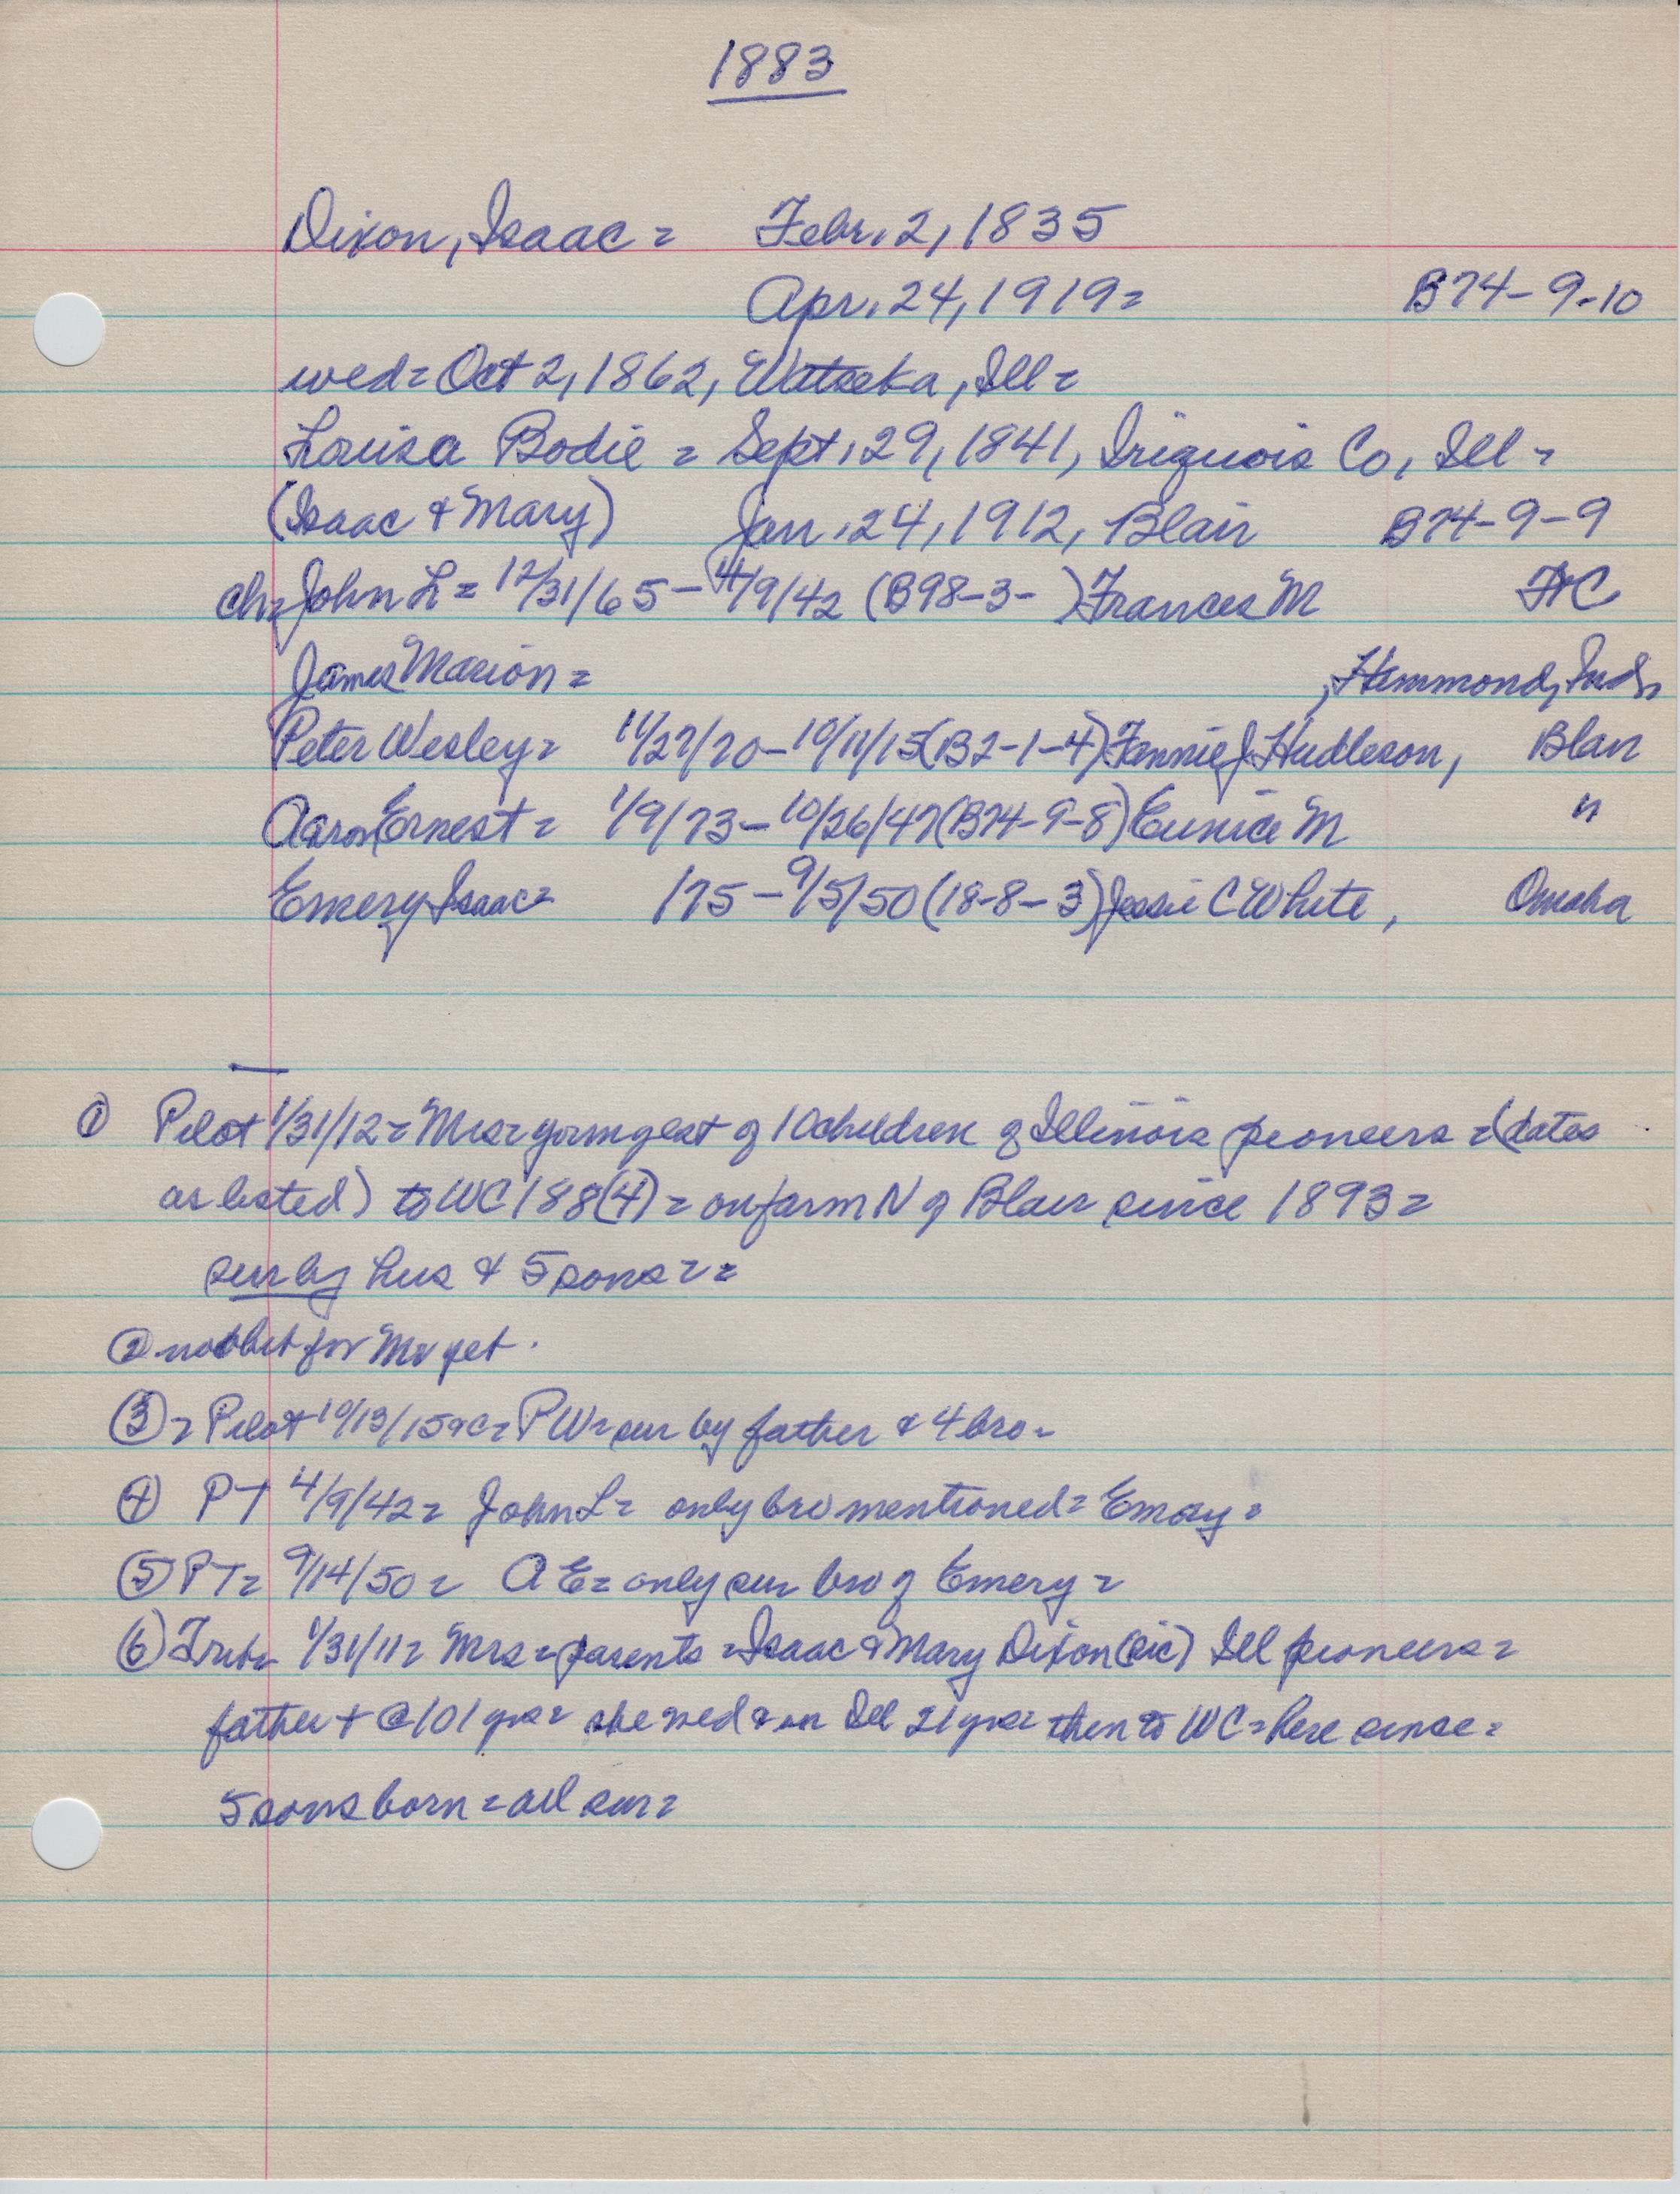 1883
Dixon, Isaac = Febr. 2, 1835
Apr. 24, 1919 = B74-9-10
wed = Oct 2, 1862, Watseka, Ill =
Louisa Bodie = Sept. 29, 1841, Iriquois Co, Ill =
(Isaac & Mary) Jan. 24, 1912, Blair B74-9-9
ch = John L = 12/31/65 - 4/9/42 (B98-3- ) Frances M FtC
James Marion = , Hammond, Ind.
Peter Wesley = 11/27/70 - 10/11/15 (B2-1-4) Fannie J Hudleson, Blair
Aaron Ernest = 1/9/73 - 10/26/47 (B74-9-8) Eunice M "
Emery Isaac = /75 - 9/5/50 (18-8-3) Jessie C White, Omaha
① Pilot 1/31/12 = Mrs = youngest of 10 children of Illinois pioneers = (dates
as listed) to WC 188(4) = on farm N of Blair since 1893 =
sur by hus & 5 sons = =
② not obit for Mr yet.
③ = Pilot 10/13/15 = PW = sur by father & 4 bro =
④ PT 4/9/42 = John L = only bro mentioned = Emory =
⑤ PT = 9/14/50 = A E = only sur bro of Emery =
⑥ Trib = 1/31/11 = Mrs = parents = Isaac & Mary Dixon (sic) Ill pioneers =
father + @ 101 yrs = she wed & in Ill 21 yrs = then to WC = here since =
5 sons born = all sur =